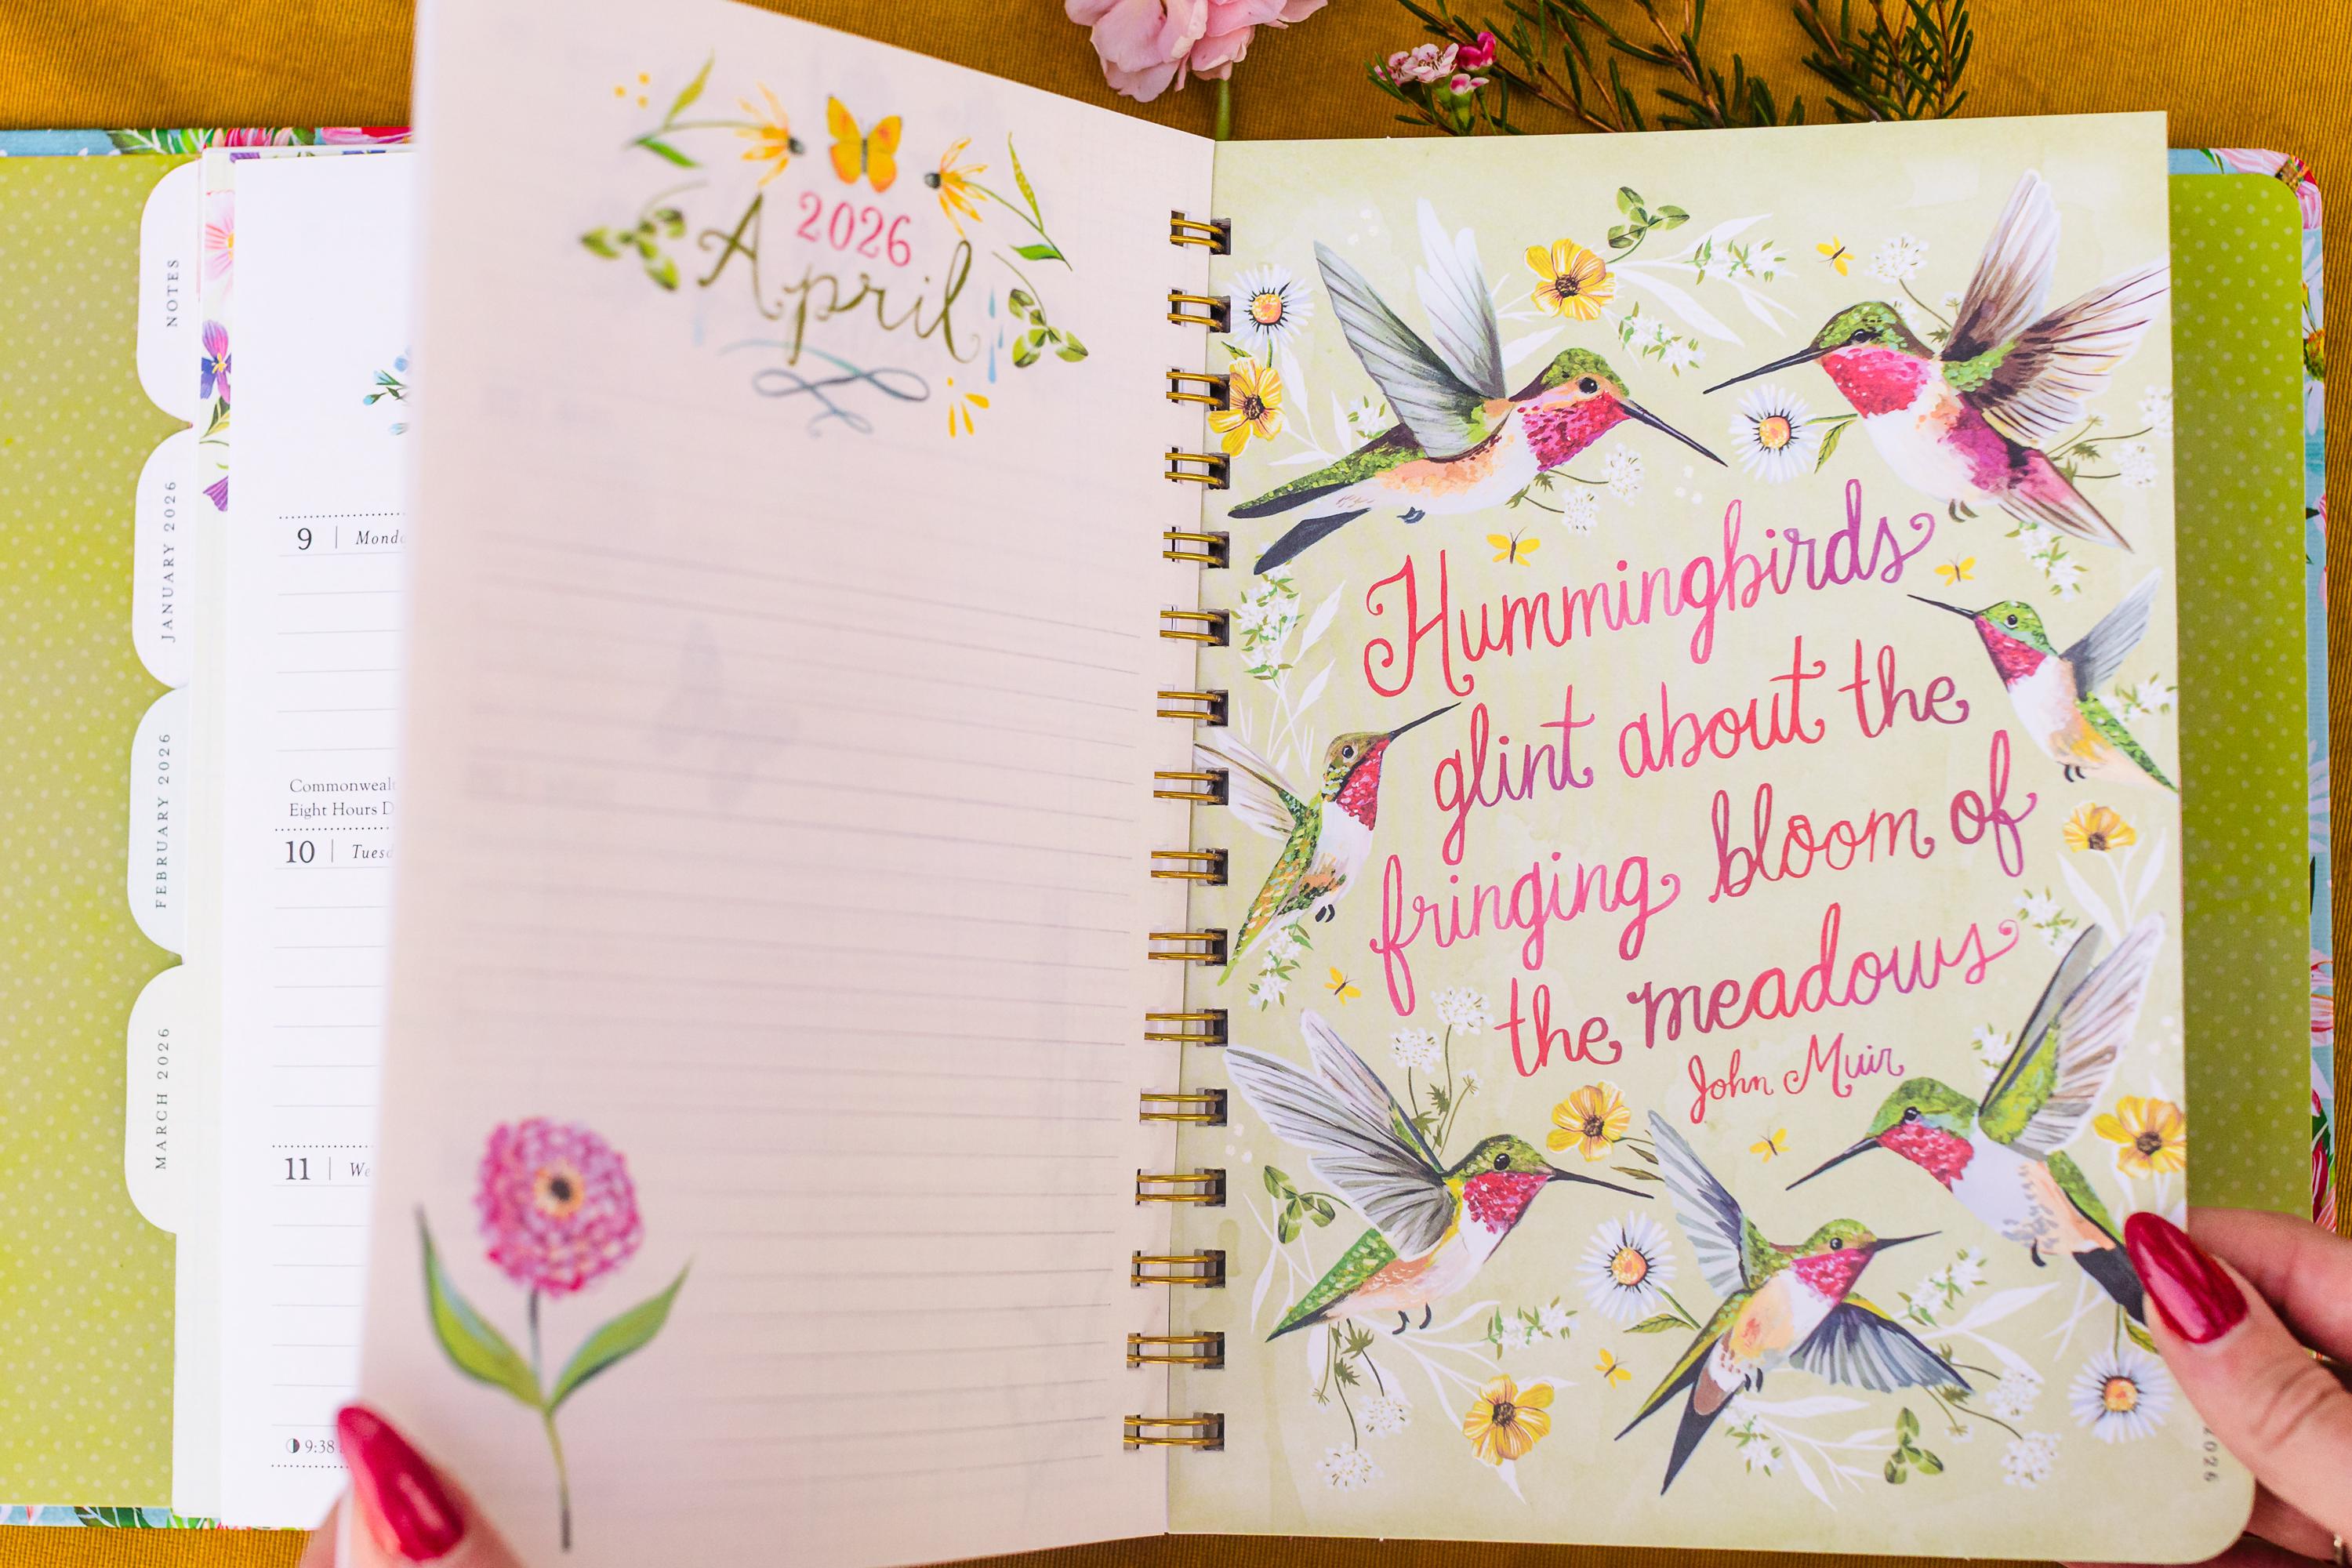 NOTES
JANUARY 2026
FEBRUARY 2026
MARCH 2026
9
10
11
Eight Hours
9:38
2026
April
Hummingbirds
glint about the
fringing bloom of
the meadows
John Muir
2026